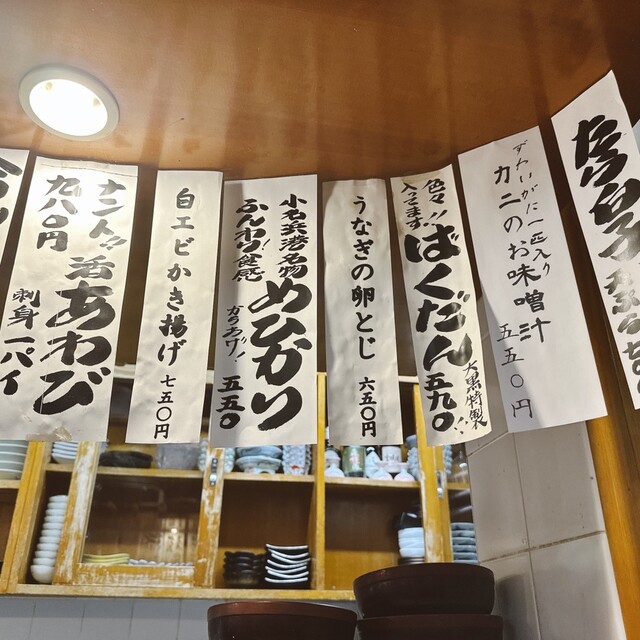 ずわいがに一匹入り
カニのお味噌汁
五五〇円
色々!!
入ってます!
ばくだん
大黒特製
五九〇!!
うなぎの卵とじ
六五〇円
小名浜港名物
ふんわり!食感
めひかり
からあげ!
五五〇
白エビかき揚げ
七五〇円
ナント!!
九八〇円
活あわび
刺身一パイ